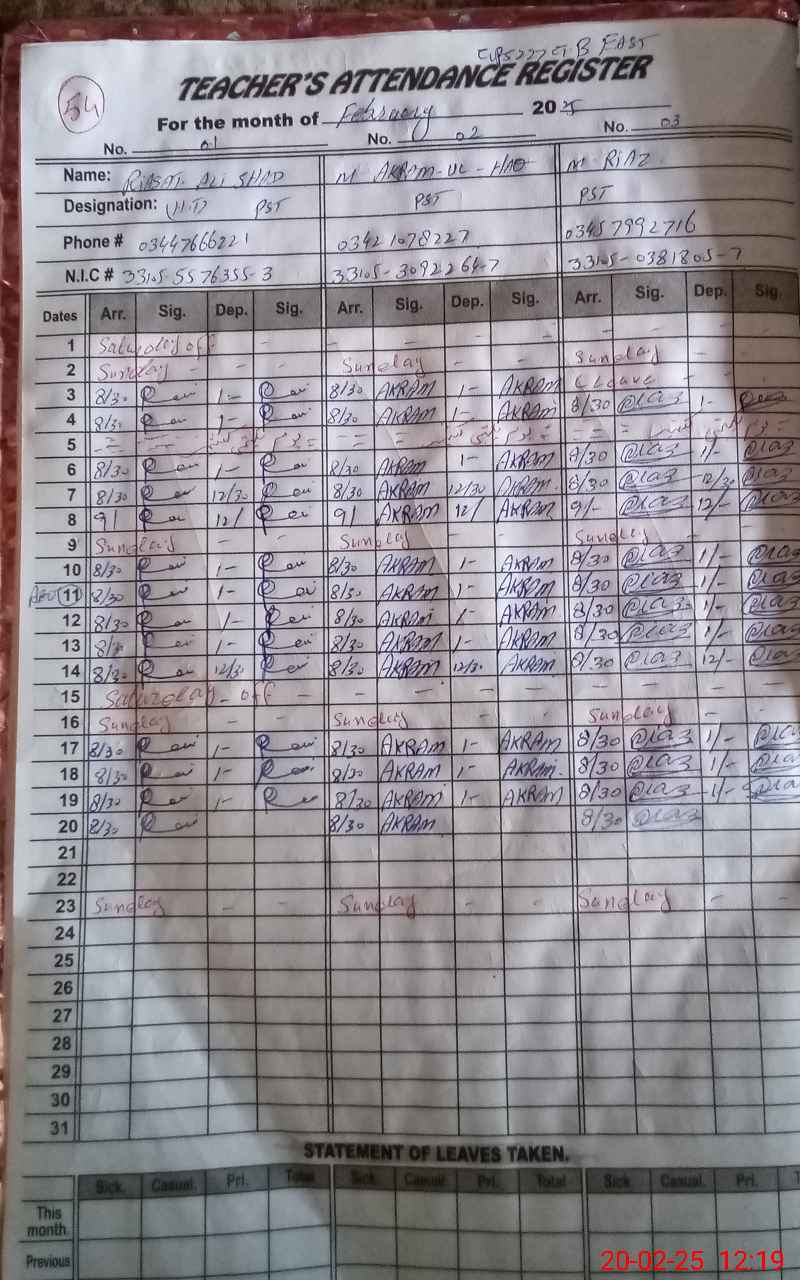 54
TEACHER'S ATTENDANCE REGISTER
For the month of February 2025
No. 01 No. 02 No. 03
Name: RIASAT ALI SHAD M AKRAM-UL-HAQ M RIAZ
Designation: PST PST PST
Phone # 03447666221 03421078227 03457992716
N.I.C # 33105-5576355-3 33105-3092264-7 33105-0381805-7
Dates Arr. Sig. Dep. Sig. Arr. Sig. Dep. Sig. Arr. Sig. Dep. Sig.
1 Saturday off - - - - - - - -
2 Sunday - - Sunday - - Sunday -
3 8/30 1- 8/30 AKRAM 1- AKRAM C Leave -
4 8/30 1- 8/30 AKRAM 1- AKRAM 8/30 1-
5
6 8/30 1- 8/30 AKRAM 1- AKRAM 8/30 1/-
7 8/30 12/30 8/30 AKRAM 12/30 AKRAM 8/30 12/30
8 9/ 12/ 9/ AKRAM 12/ AKRAM 9/- 12/-
9 Sunday - - Sunday - - Sunday -
10 8/30 1- 8/30 AKRAM 1- AKRAM 8/30 1/-
11 8/30 1- 8/30 AKRAM 1- AKRAM 8/30 1/-
12 8/30 1- 8/30 AKRAM 1- AKRAM 8/30 1/-
13 8/30 1- 8/30 AKRAM 1- AKRAM 8/30 1/-
14 8/30 12/30 8/30 AKRAM 12/30 AKRAM 8/30 12/-
15 Saturday - off - - - - - - - -
16 Sunday - - Sunday - - Sunday -
17 8/30 1- 8/30 AKRAM 1- AKRAM 8/30 1/-
18 8/30 1- 8/30 AKRAM 1- AKRAM 8/30 1/-
19 8/30 1- 8/30 AKRAM 1- AKRAM 8/30 1/-
20 8/30 8/30 AKRAM 8/30
21
22
23 Sunday - - Sunday - - Sunday - -
24
25
26
27
28
29
30
31
STATEMENT OF LEAVES TAKEN.
Sick. Casual. Pri. Total Sick. Casual. Pri. Total Sick Casual. Pri.
This month
Previous
20-02-25 12:19